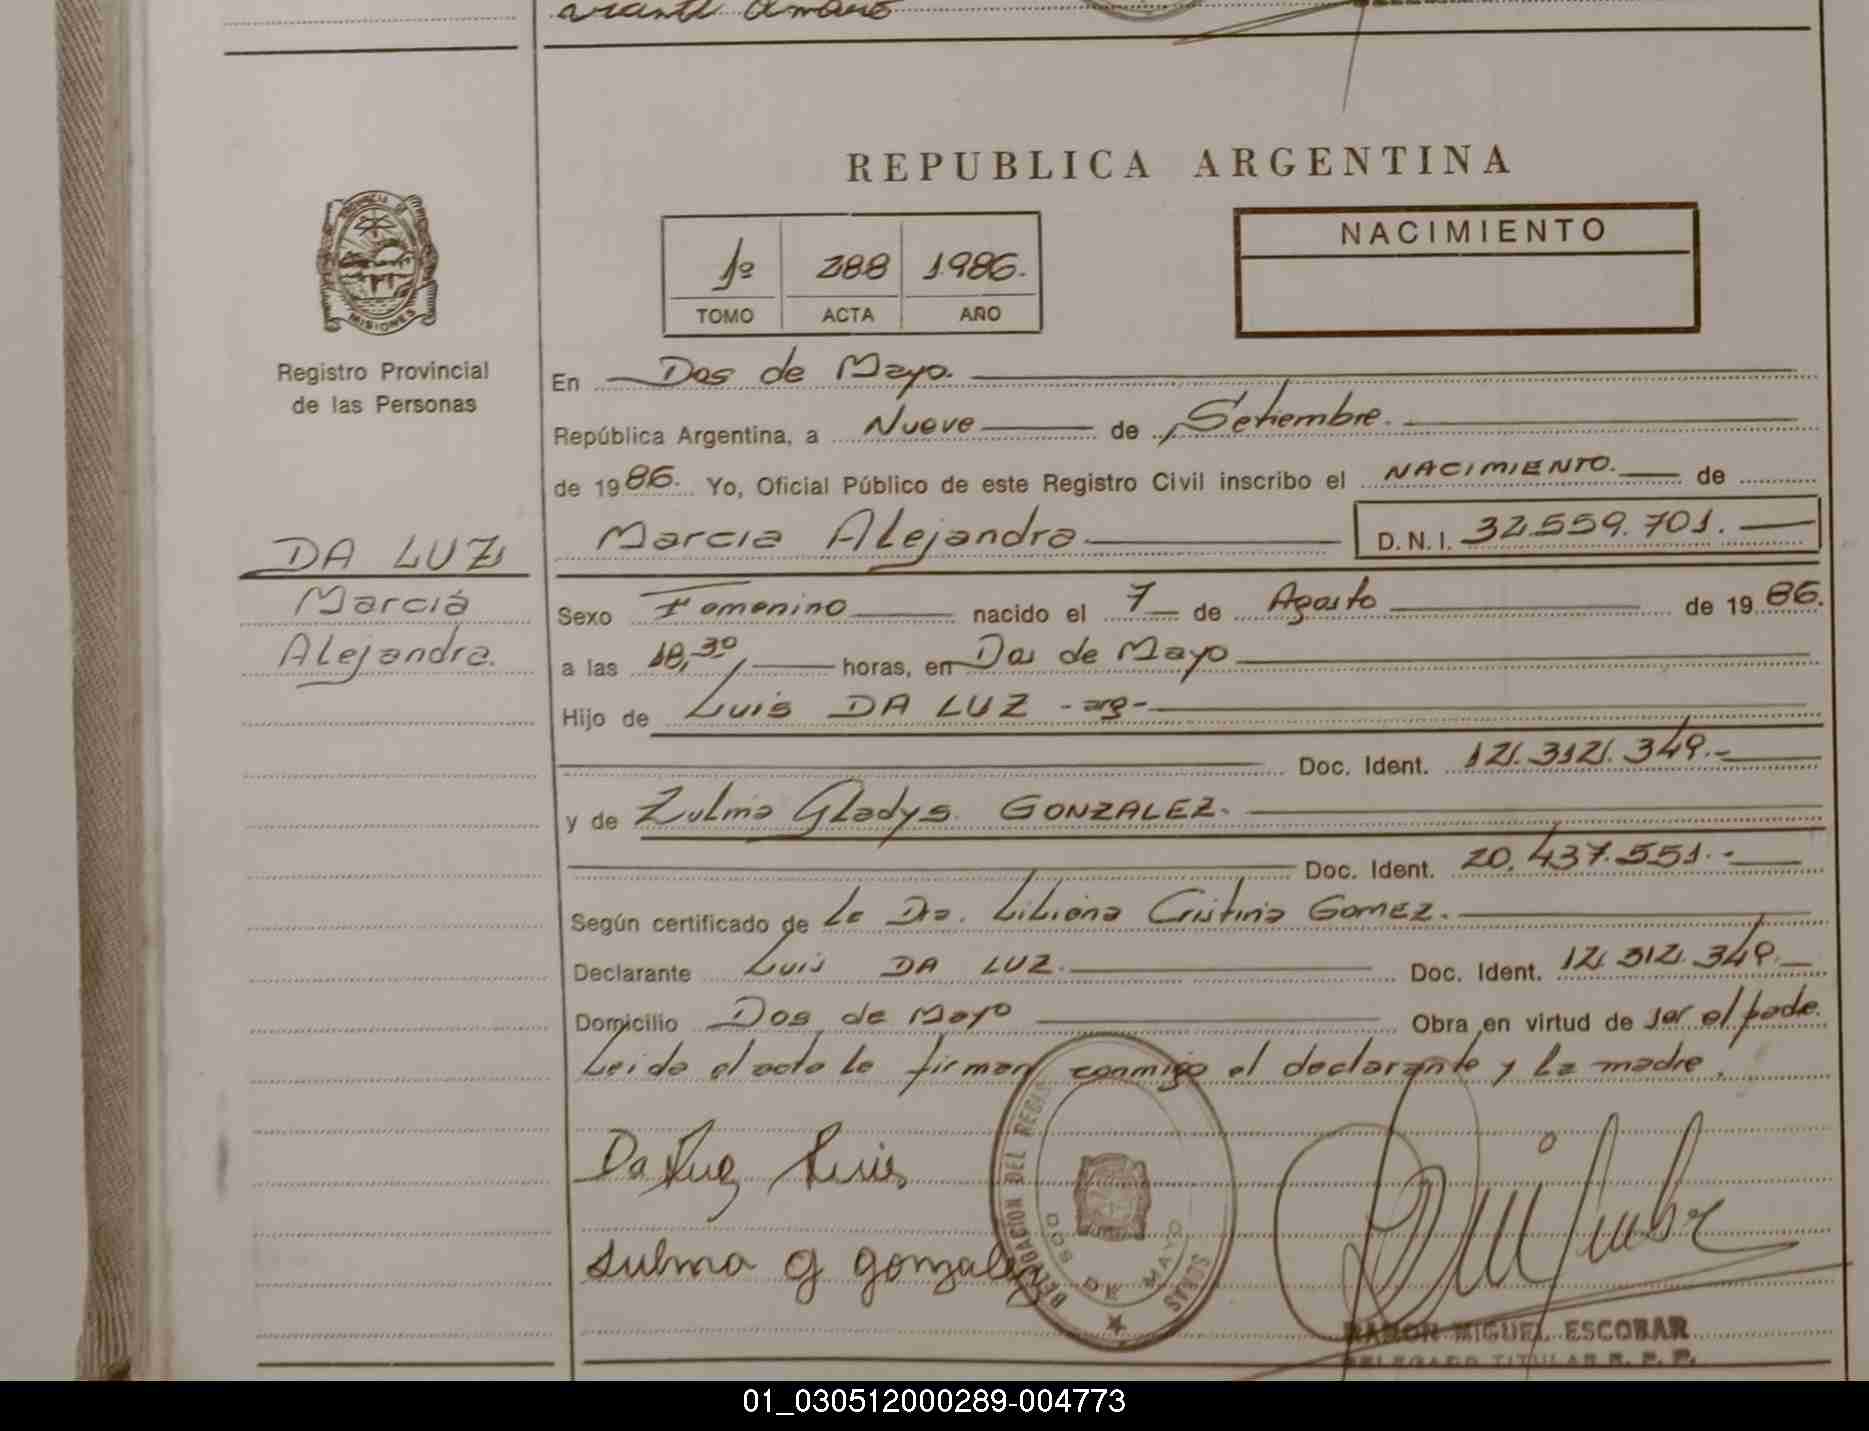 Amaro
REPUBLICA ARGENTINA
PROVINCIA DE
MISIONES
1º 288 1986.
TOMO ACTA AÑO
NACIMIENTO
Registro Provincial
de las Personas
En Dos de Mayo.
República Argentina, a Nueve de Setiembre.
de 1986. Yo, Oficial Público de este Registro Civil inscribo el NACIMIENTO. de
Marcia Alejandra D.N.I. 32.559.701.
DA LUZ
Marcia
Alejandra.
Sexo Femenino nacido el 7 de Agosto de 1986.
a las 18,30 horas, en Dos de Mayo
Hijo de Luis DA LUZ - arg -
Doc. Ident. 12.312.349.-
y de Zulma Gladys GONZALEZ.
Doc. Ident. 20.437.551.-
Según certificado de la Dra. Liliana Cristina Gomez.
Declarante Luis DA LUZ. Doc. Ident. 12.312.349.
Domicilio Dos de Mayo Obra en virtud de ser el padre.
Leida el acta la firman conmigo el declarante y la madre.
Da Luz Luis
Sulma g gonzalez
DELEGACION DEL REGIS
DOS DE MAYO
RAMON MIGUEL ESCOBAR
DELEGADO TITULAR R. P. P.
01_030512000289-004773